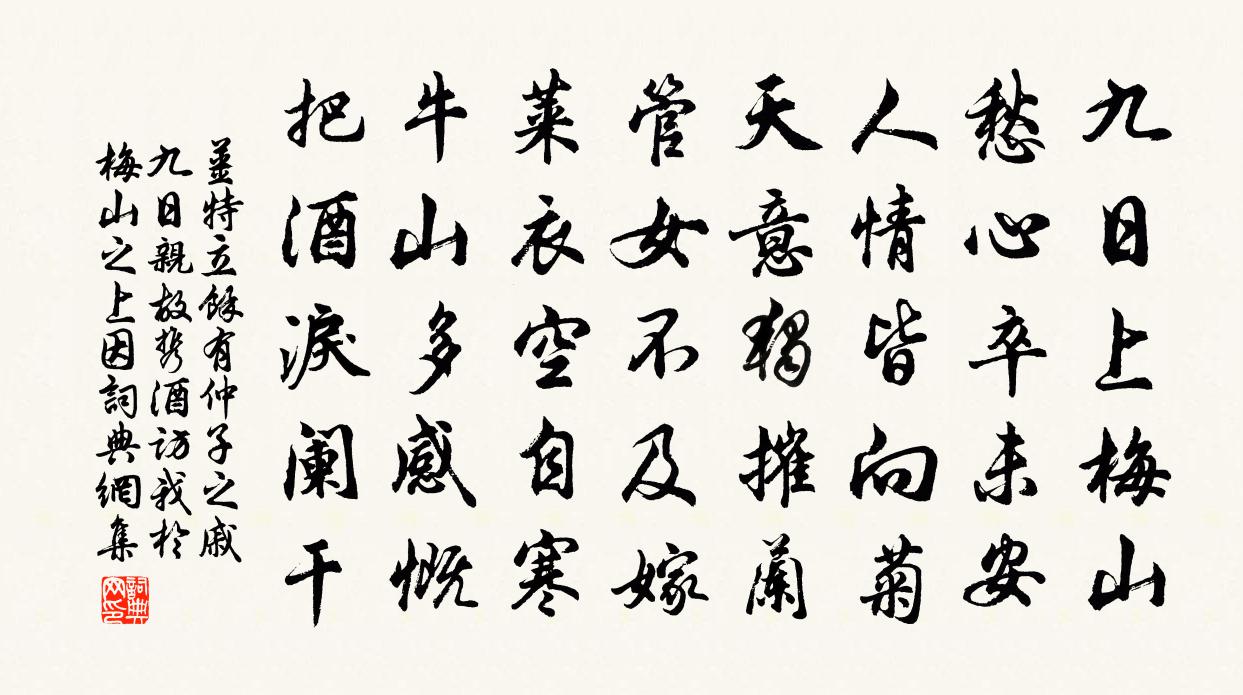 九日上梅山
愁心卒未安
人情皆向菊
天意獨摧蘭
管女不及嫁
萊衣空自寒
牛山多感慨
把酒淚闌干
姜特立餘有仲子之戚
九日親故携酒訪我於
梅山之上因詞典網集
詞典
网印